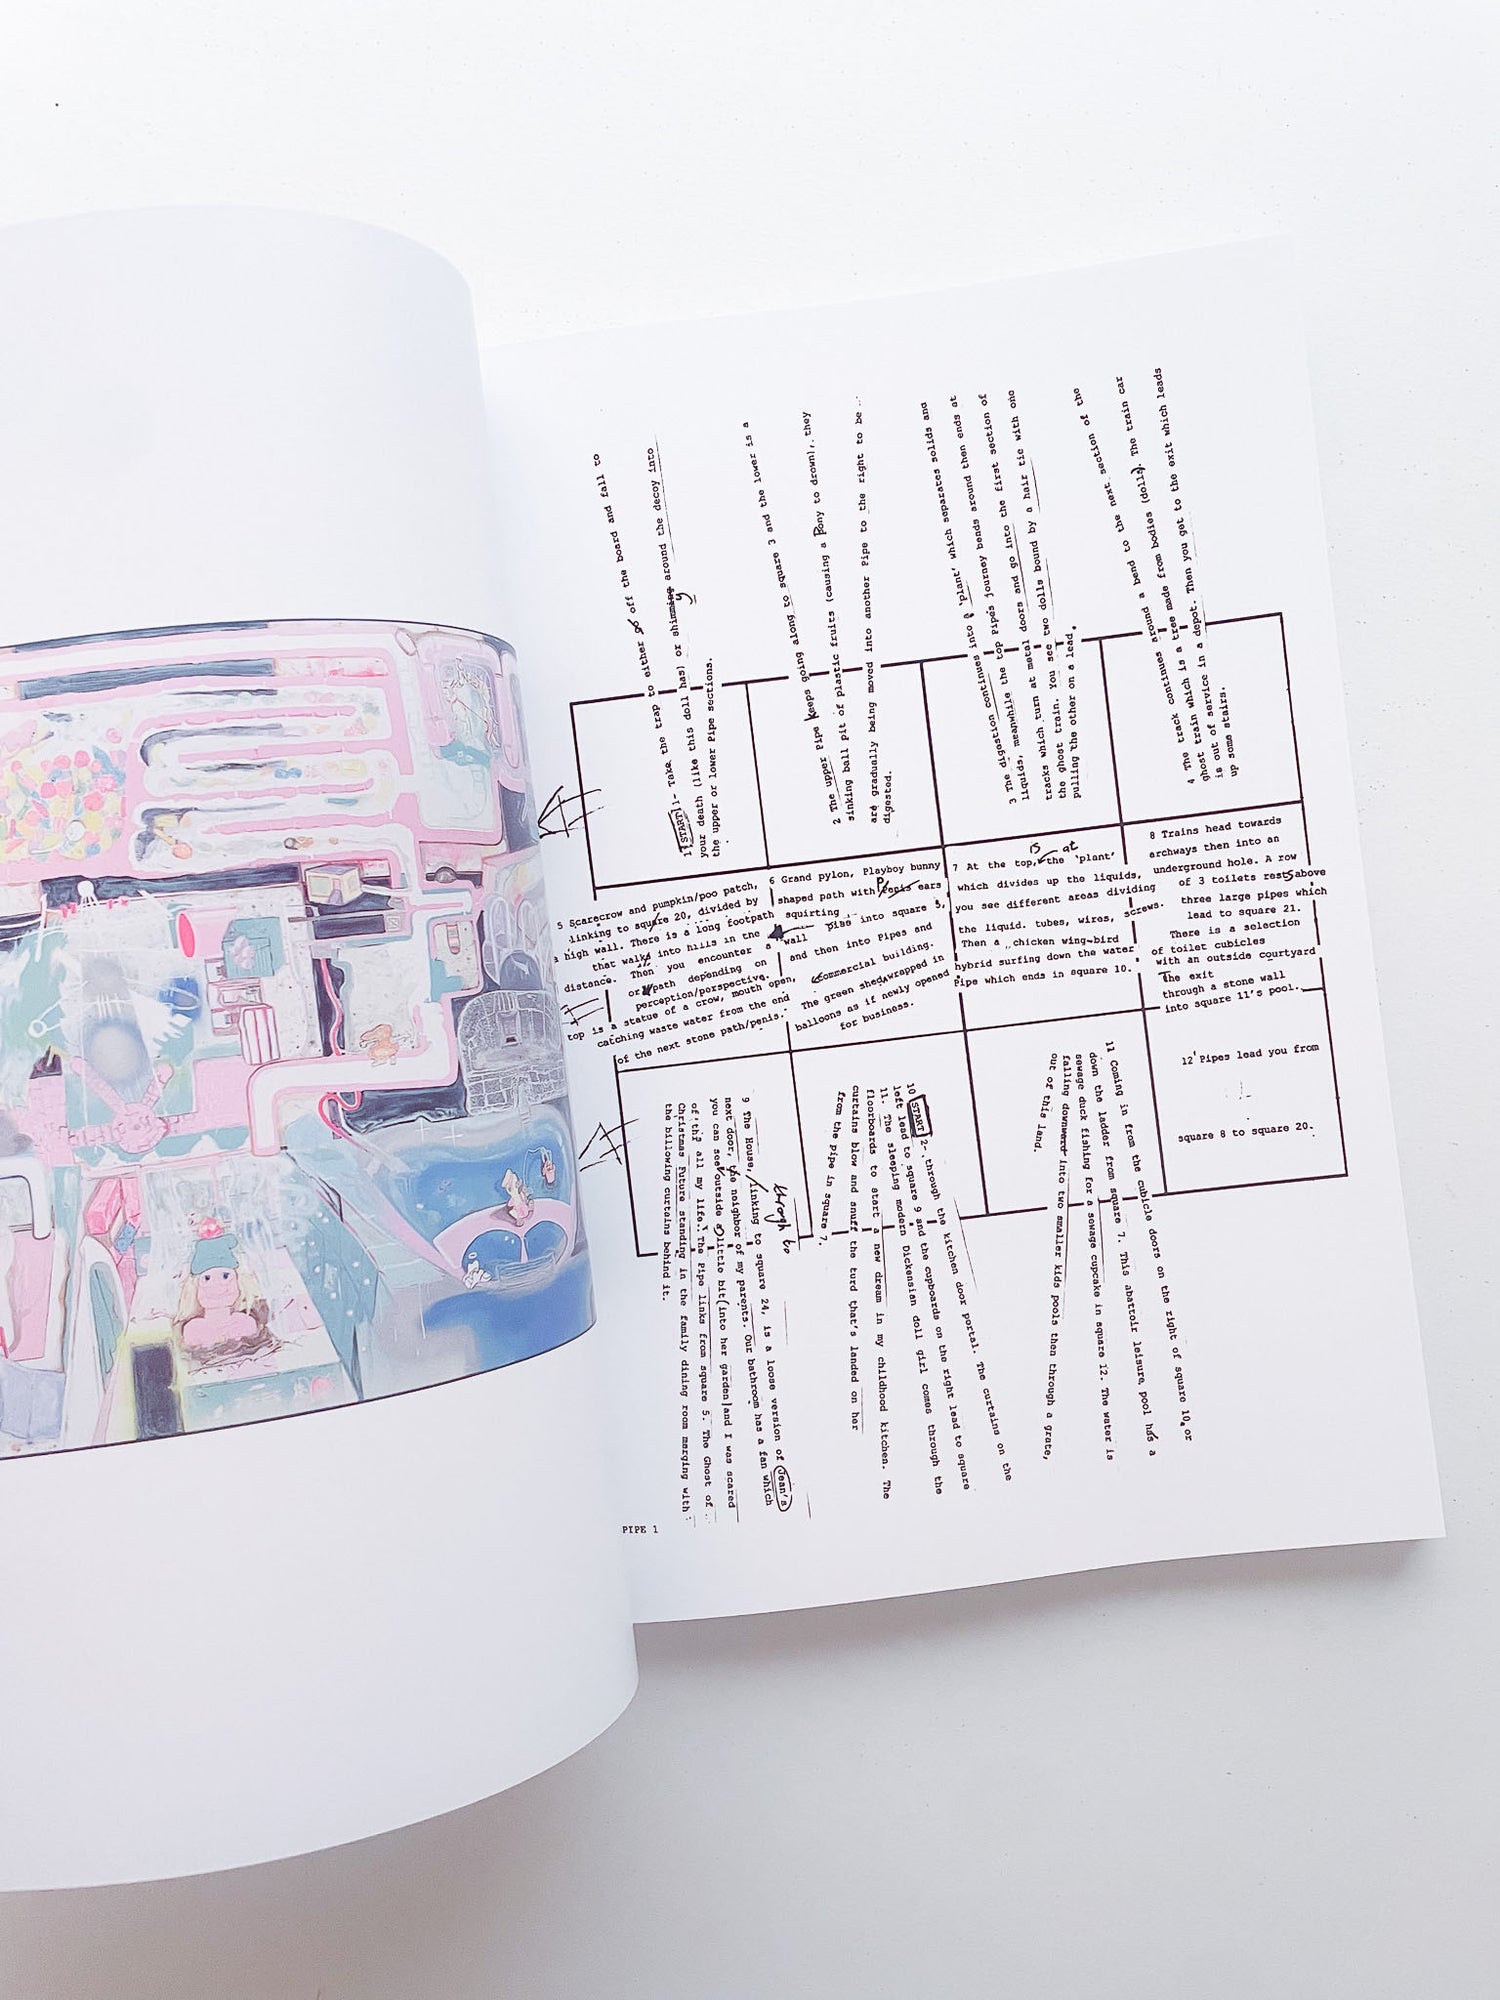 1 START 1- Take the trap to either go off the board and fall to
your death (like this doll has) or shimmy around the decoy into
the upper or lower Pipe sections.
2 The upper Pipe keeps going along to square 3 and the lower is a
sinking ball pit of plastic fruits (causing a Pony to drown), they
are gradually being moved into another Pipe to the right to be
digested.
3 The digestion continues into a 'plant' which separates solids and
liquids, meanwhile the top Pipes journey bends around then ends at
tracks which turn at metal doors and go into the first section of
the ghost train. You see two dolls bound by a hair tie with one
pulling the other on a lead.
4 The track continues around a bend to the next section of the
ghost train which is a tree made from bodies (dolls). The train car
is out of service in a depot. Then you get to the exit which leads
up some stairs.
5 Scarecrow and pumpkin/poo patch,
linking to square 20, divided by
a high wall. There is a long footpath
that walks into hills in the
distance. Then you encounter a
or path depending on
perception/perspective.
top is a statue of a crow, mouth open,
catching waste water from the end
of the next stone path/penis.
6 Grand pylon, Playboy bunny
shaped path with Penis ears
squirting
wall piss into square 5,
and then into Pipes and
Commercial building.
The green shed wrapped in
balloons as if newly opened
for business.
is at
7 At the top, the 'plant'
which divides up the liquids,
you see different areas dividing
the liquid. tubes, wires, screws.
Then a chicken wing-bird
hybrid surfing down the water
Pipe which ends in square 10.
8 Trains head towards
archways then into an
underground hole. A row
of 3 toilets rests above
three large pipes which
lead to square 21.
There is a selection
of toilet cubicles
with an outside courtyard
The exit
through a stone wall
into square 11's pool.
through to
9 The House, linking to square 24, is a loose version of Jean's
next door, the neighbor of my parents. Our bathroom has a fan which
you can see outside a little bit (into her garden) and I was scared
of this all my life. The Pipe links from square 5. The Ghost of
Christmas Future standing in the family dining room merging with
the billowing curtains behind it.
10 START 2- through the kitchen door portal. The curtains on the
left lead to square 9 and the cupboards on the right lead to square
11. The sleeping modern Dickensian doll girl comes through the
floorboards to start a new dream in my childhood kitchen. The
curtains blow and snuff the turd that's landed on her
from the Pipe in square 7.
11 Coming in from the cubicle doors on the right of square 10, or
down the ladder from square 7. This abattoir leisure pool has a
sewage duck fishing for a sewage cupcake in square 12. The water is
falling downward into two smaller kids pools then through a grate,
out of this land.
12 Pipes lead you from
square 8 to square 20.
PIPE 1